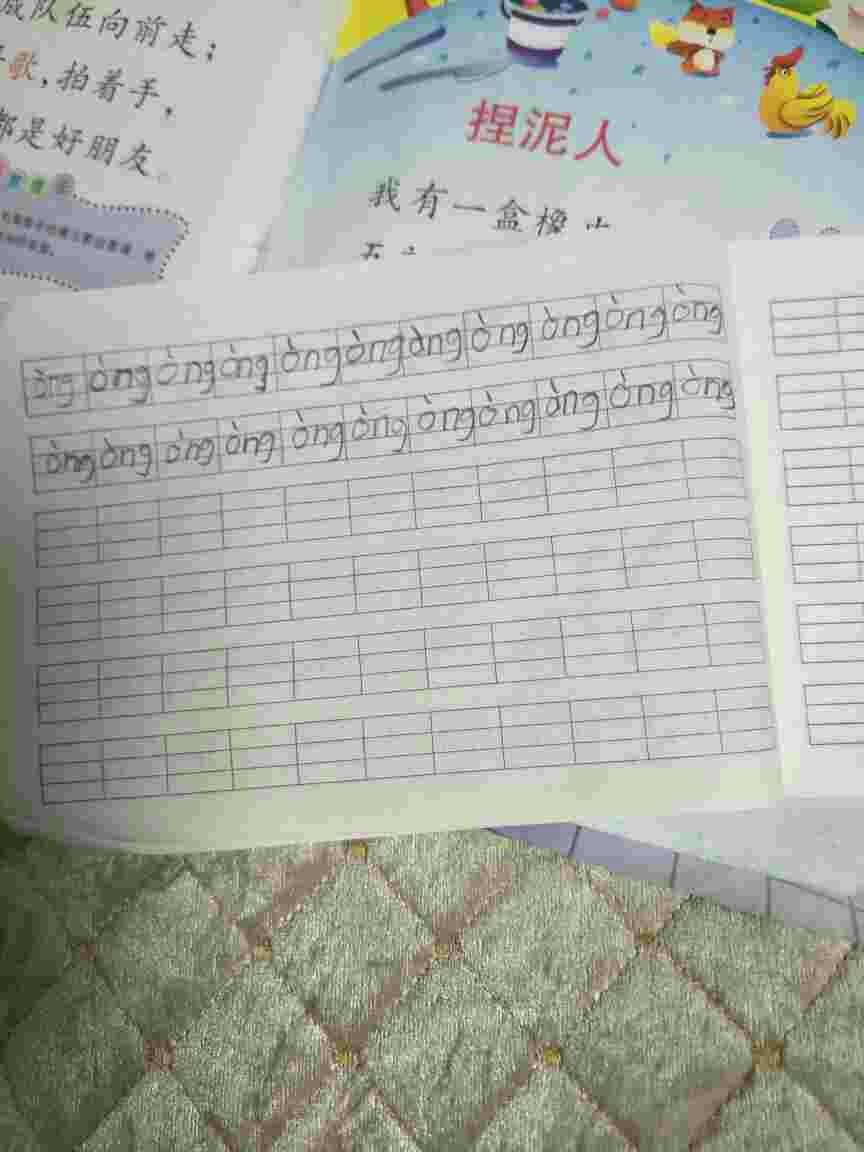 队伍向前走；
歌，拍着手，
都是好朋友。
捏泥人
我有一盒橡
òng òng òng òng òng òng òng òng òng òng òng
òng òng òng òng òng òng òng òng òng òng òng